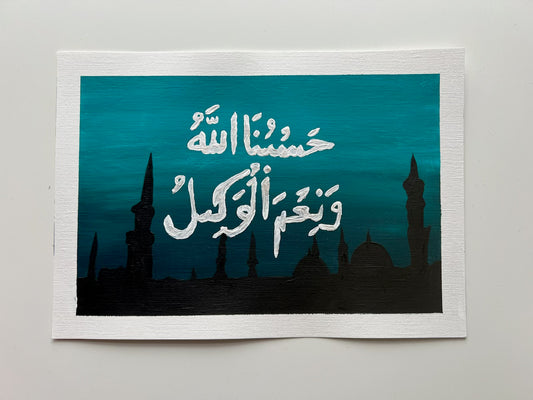 حَسْبُنَا اللَّهُ
وَنِعْمَ الْوَكِيلُ